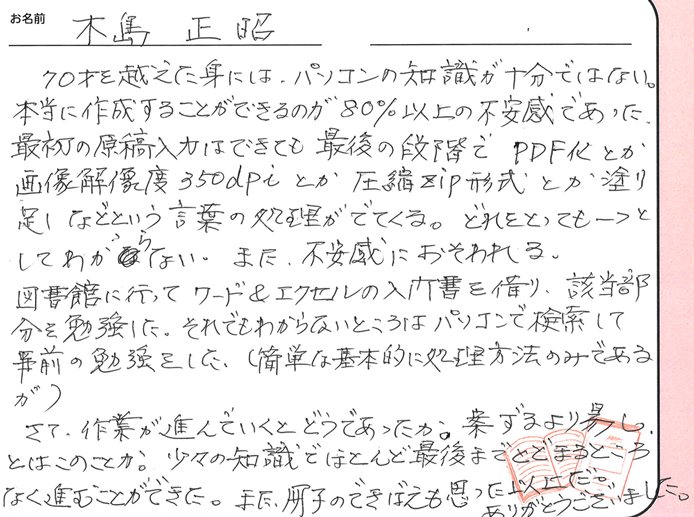 お名前 木島 正昭
70才を越えた身には、パソコンの知識が十分ではない。
本当に作成することができるのが80%以上の不安感であった。
最初の原稿入力はできても最後の段階でPDF化とか
画像解像度350dpiとか圧縮zip形式とか塗り
足しなどという言葉の処理がでてくる。どれをとっても一つと
してわからない。また、不安感におそわれる。
図書館に行ってワード&エクセルの入門書を借り、該当部
分を勉強した。それでもわからないところはパソコンで検索して
事前の勉強をした。(簡単な基本的に処理方法のみである
が)
さて、作業が進んでいくとどうであったか。案ずるより易し、
とはこのことか。少々の知識でほとんど最後までとどまるところ
なく進むことができた。また、冊子のできばえも思った以上だ。
ありがとうございました。